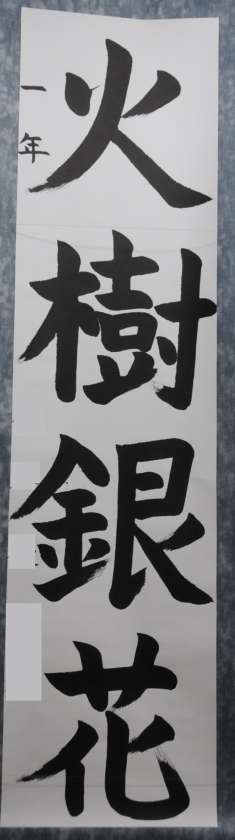 火樹銀花
一年